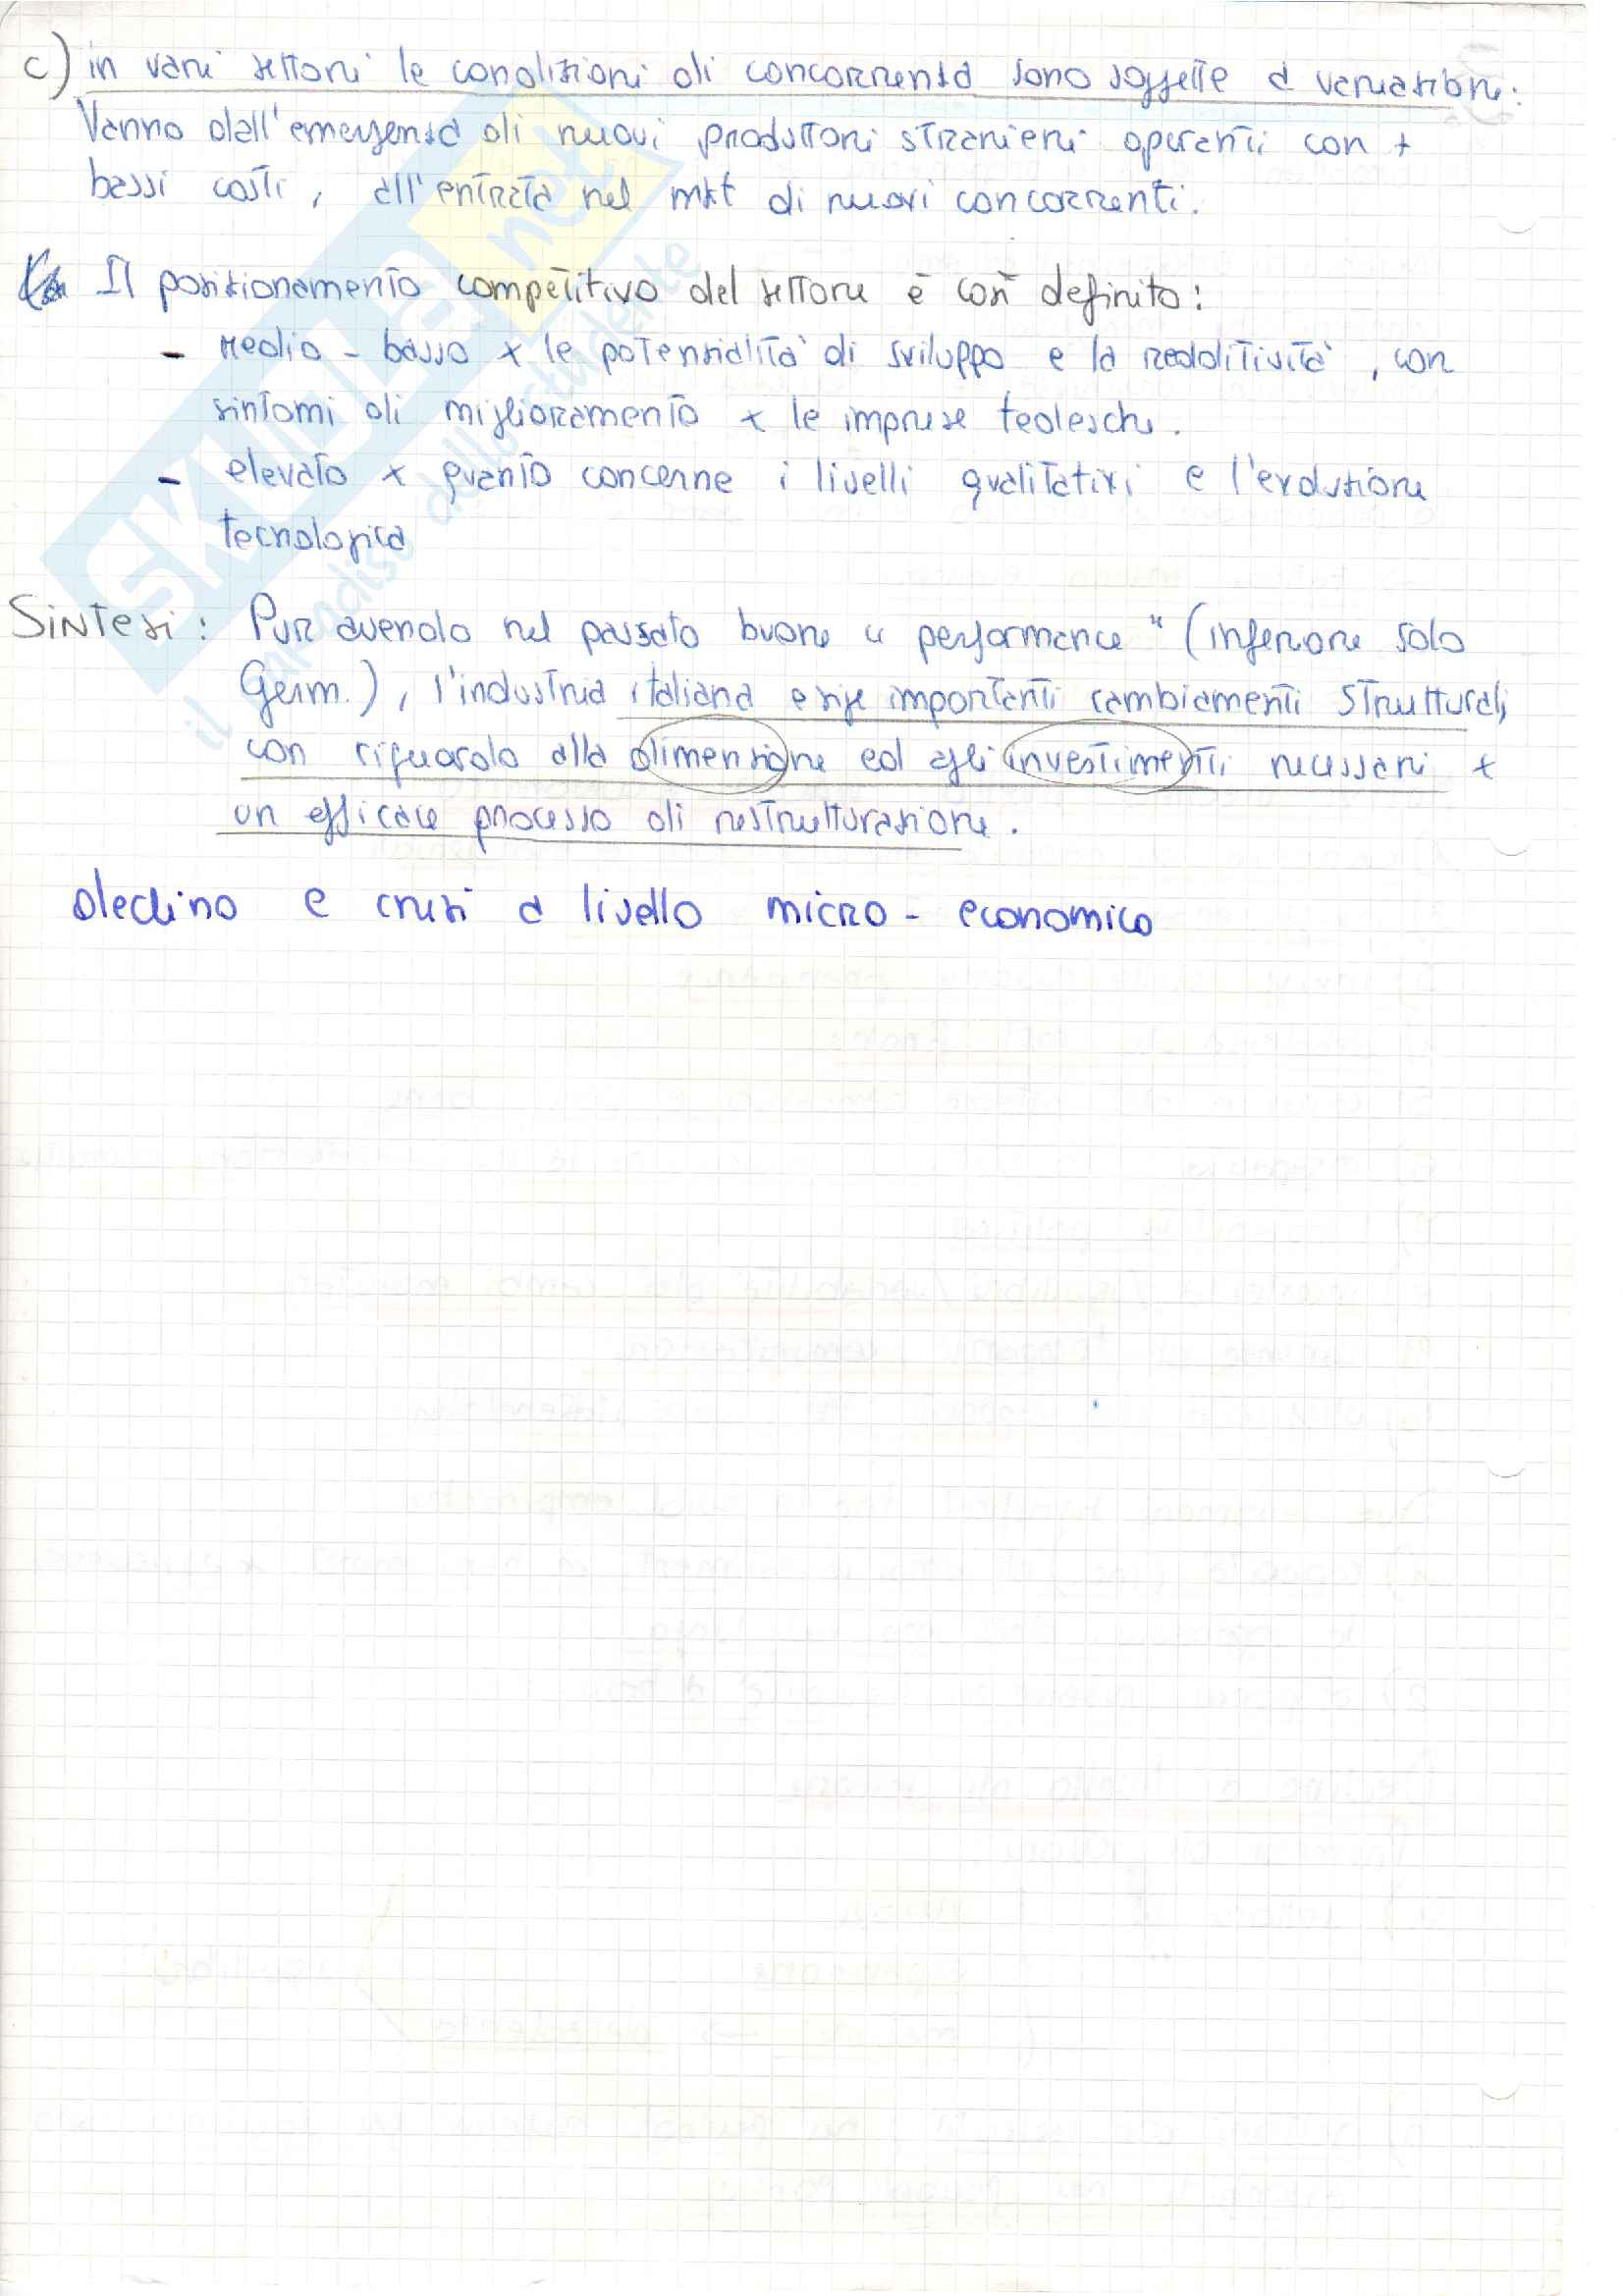 c) in vari settori le condizioni di concorrenza sono soggette a variazioni.
Vanno dall'emergenza di nuovi produttori stranieri operanti con +
bassi costi, all'entrata nel mkt di nuovi concorrenti.
Il posizionamento competitivo del settore è così definito:
- Medio - basso x le potenzialità di sviluppo e la redditività, con
sintomi di miglioramento x le imprese tedesche.
- elevato x quanto concerne i livelli qualitativi e l'evoluzione
tecnologica
Sintesi: Pur avendo nel passato buone "performance" (inferiore solo
Germ.), l'industria italiana esige importanti cambiamenti strutturali,
con riguardo alla dimensione ed agli investimenti necessari x
un efficace processo di ristrutturazione.
declino e crisi a livello micro-economico
SKUOLA.net
il paradiso dello studente